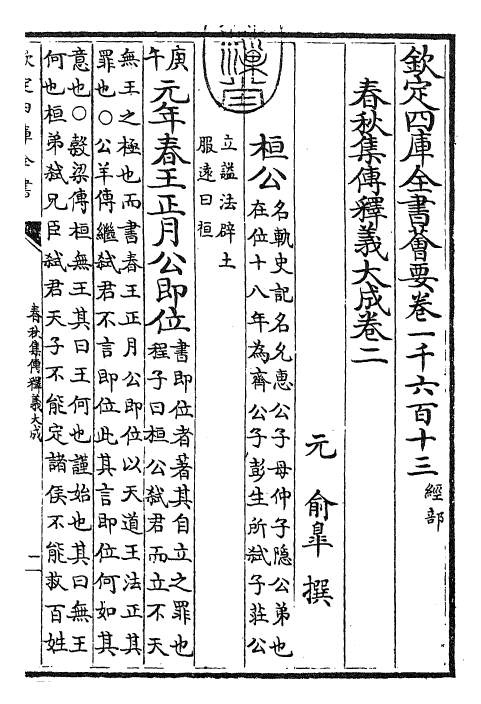 欽定四庫全書薈要卷一千六百十三 經部
春秋集傳釋義大成卷二
元 俞皐 撰
桓公 名軌史記名允惠公子母仲子隱公弟也
在位十八年為齊公子彭生所弑子莊公
立諡法辟土
服逺曰桓
庚午 元年春王正月公即位 書即位者著其自立之罪也
程子曰桓公弑君而立不天
無王之極也而書春王正月公即位以天道王法正其
罪也○公羊傳繼弑君不言即位此其言即位何如其
意也○榖梁傳桓無王其曰王何也謹始也其曰無王
何也桓弟弑兄臣弑君天子不能定諸侯不能救百姓
欽定四庫全書
春秋集傳釋義大成